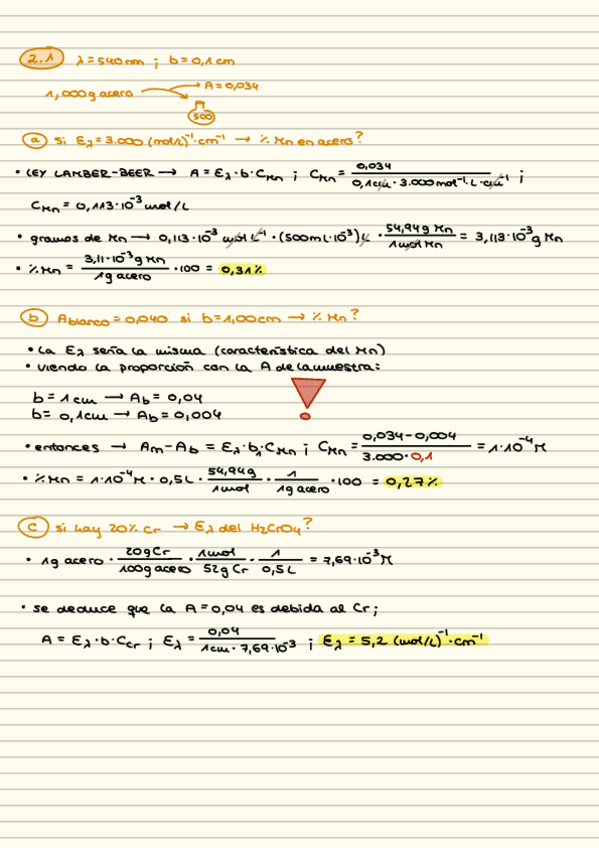 2.1 λ=540nm ; b=0,1cm
1,000g acero → A=0,034
500
a) Si Ελ=3.000 (mol/L)⁻¹·cm⁻¹ → % Mn en acero?
• LEY LAMBER-BEER → A = Ελ·b·CMn ; CMn = 0,034 / (0,1cm · 3.000 mol⁻¹·L·cm⁻¹) ;
CMn = 0,113·10⁻³ mol/L
• gramos de Mn → 0,113·10⁻³ mol L⁻¹ · (500mL·10⁻³)L · 54,94g Mn / 1mol Mn = 3,113·10⁻³ g Mn
• % Mn = 3,11·10⁻³ g Mn / 1g acero · 100 = 0,31%
b) Ablanco = 0,040 si b=1,00cm → % Mn?
• La Ελ sería la misma (característica del Mn)
• viendo la proporción con la A de la muestra:
b = 1cm → Ab = 0,04
b = 0,1cm → Ab = 0,004
• entonces → Am-Ab = Ελ·b·CMn ; CMn = (0,034-0,004) / (3.000·0,1) = 1·10⁻⁴ M
• % Mn = 1·10⁻⁴ M · 0,5L · 54,94g / 1mol · 1 / 1g acero · 100 = 0,27%
c) si hay 20% Cr → Ελ del H₂CrO₄?
• 1g acero · 20g Cr / 100g acero · 1mol / 52g Cr · 1 / 0,5L = 7,69·10⁻³ M
• se deduce que la A=0,04 es debida al Cr;
A = Ελ·b·Ccr ; Ελ = 0,04 / (1cm · 7,69·10⁻³) ; Ελ = 5,2 (mol/L)⁻¹·cm⁻¹